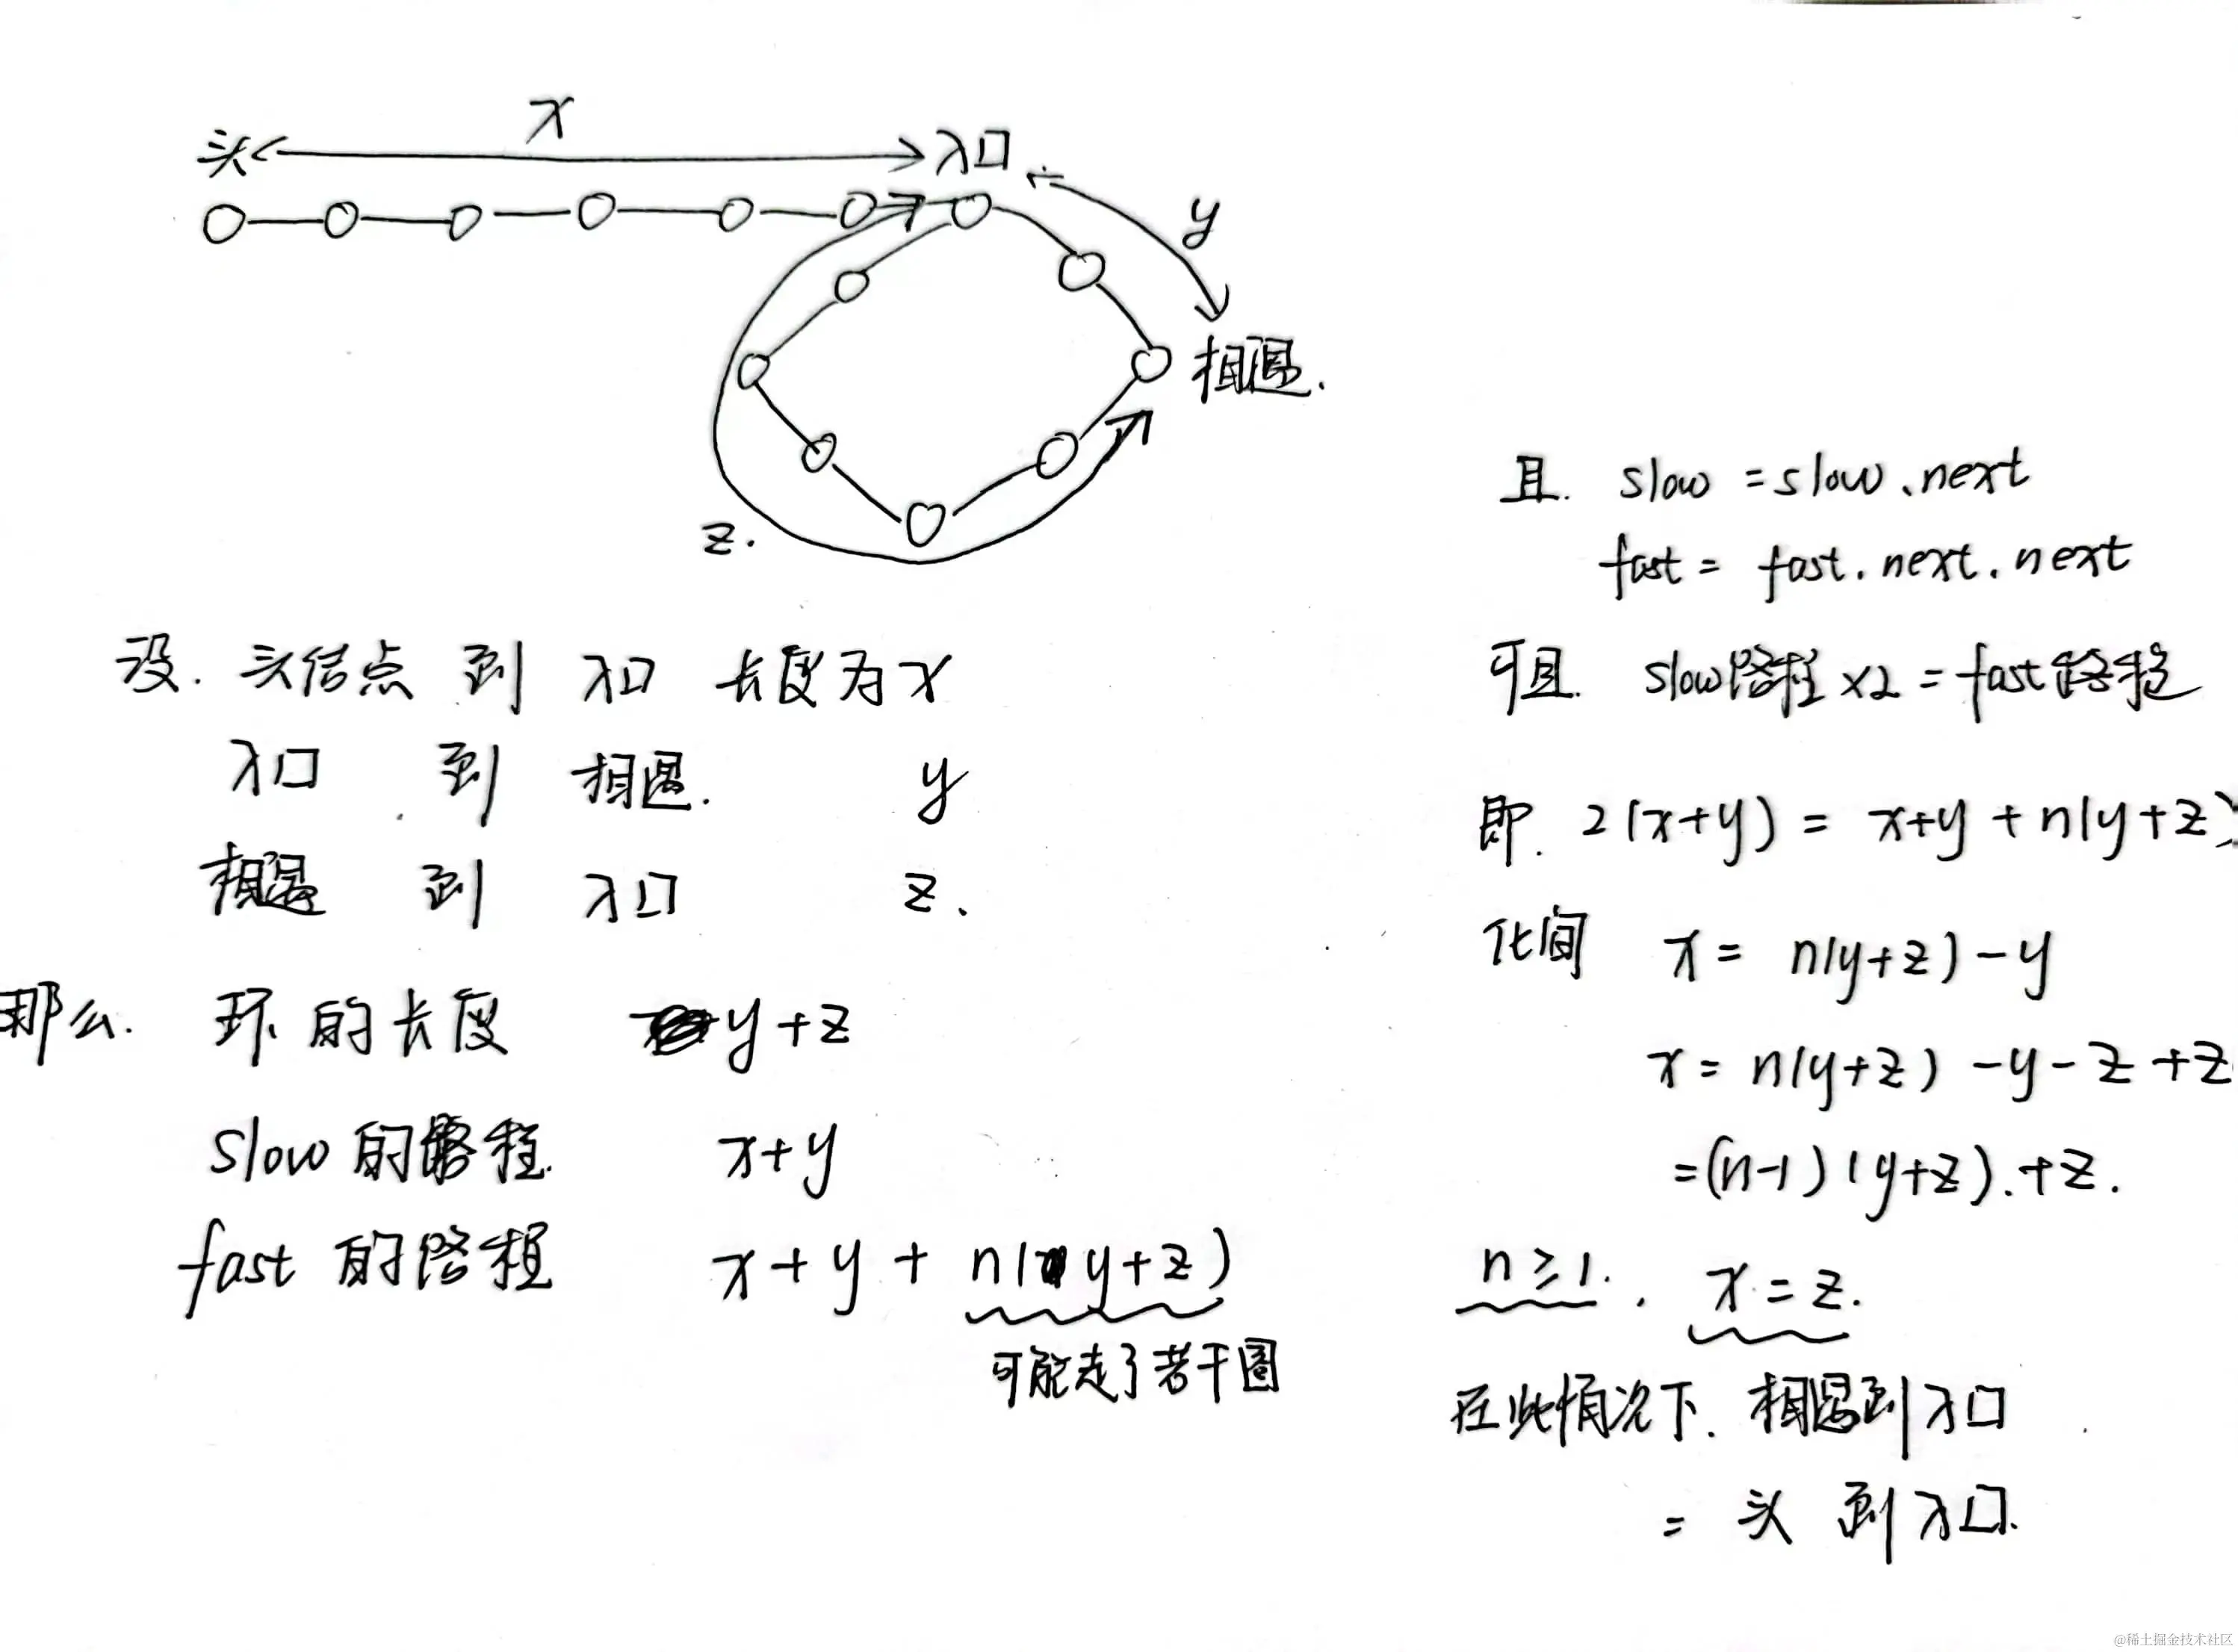 x
头 入口
y
相遇.
z.
设. 头结点 到 入口 长度为 x
入口 到 相遇. y
相遇 到 入口 z.
那么. 环的长度 y+z
slow 的路程 x+y
fast 的路程 x+y+n(y+z)
可能走了若干圈
且. slow = slow.next
fast = fast.next.next
可且. slow路程 x2 = fast路程
即. 2(x+y) = x+y+n(y+z)
化间 x = n(y+z)-y
x = n(y+z) -y-z+z
=(n-1)(y+z).+z.
n≥1. , x=z.
在此情况下. 相遇到入口
= 头 到入口.
@稀土掘金技术社区